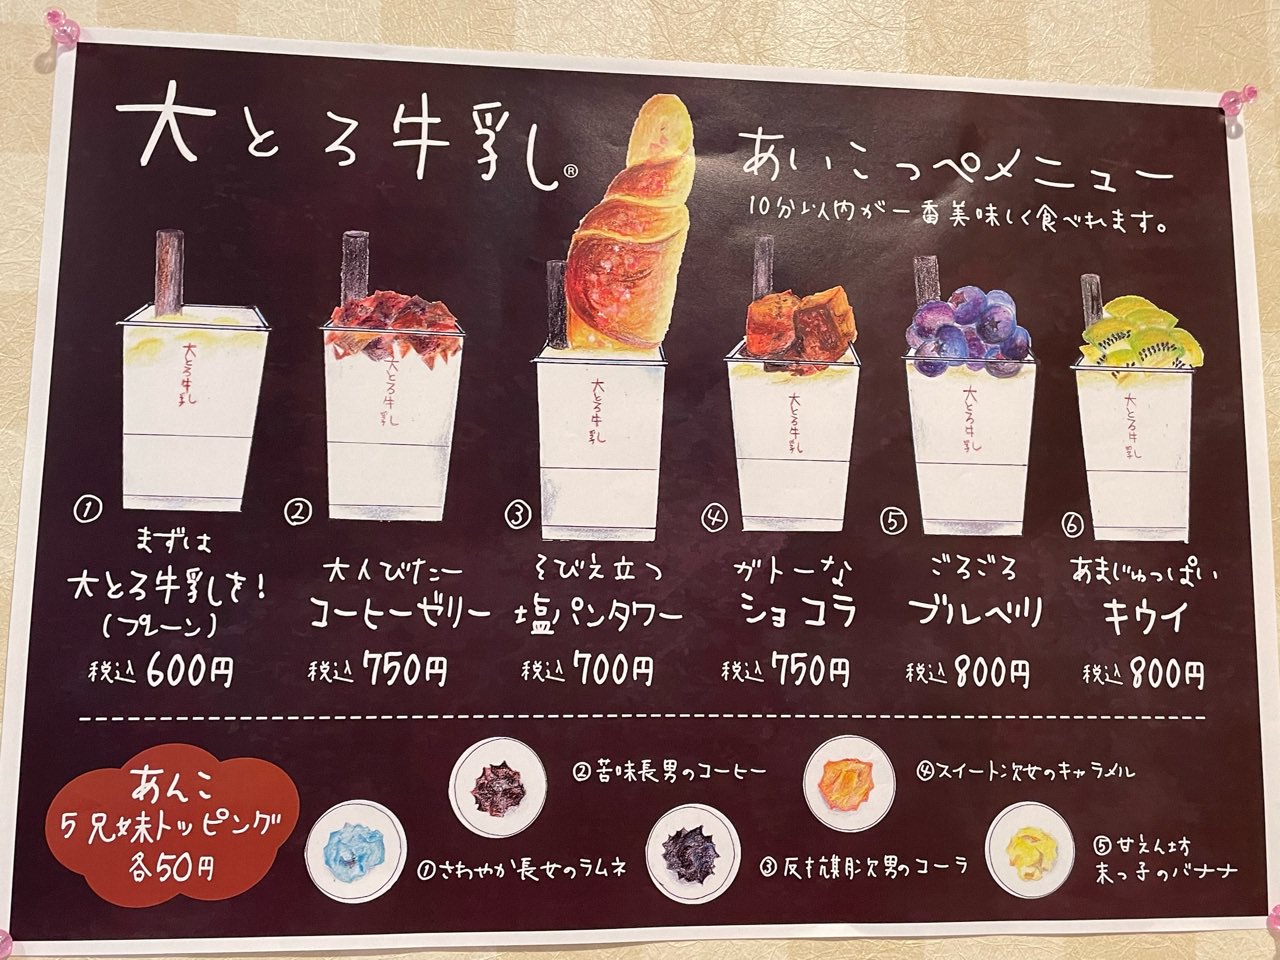 大とろ牛乳®
あいこっぺメニュー
10分以内が一番美味しく食べれます。
大とろ牛乳
大とろ牛乳
大とろ牛乳
大とろ牛乳
大とろ牛乳
大とろ牛乳
①
まずは
大とろ牛乳を!
(プレーン)
税込600円
②
大人びたー
コーヒーゼリー
税込750円
③
そびえ立つ
塩パンタワー
税込700円
④
ガトーな
ショコラ
税込750円
⑤
ごろごろ
ブルベリ
税込800円
⑥
あまじゅっぱい
キウイ
税込800円
あんこ
5兄妹トッピング
各50円
①さわやか長女のラムネ
②苦味長男のコーヒー
③反抗旗次男のコーラ
④スイート次女のキャラメル
⑤甘えん坊
末っ子のバナナ